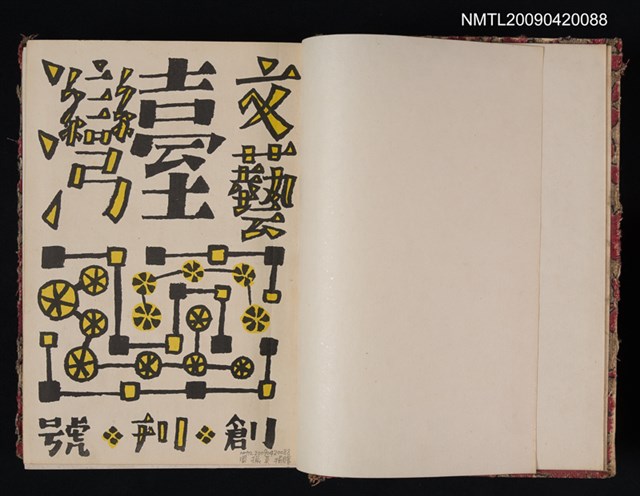 NMTL20090420088
文藝
臺
灣
創刊號
NMTL20090420088